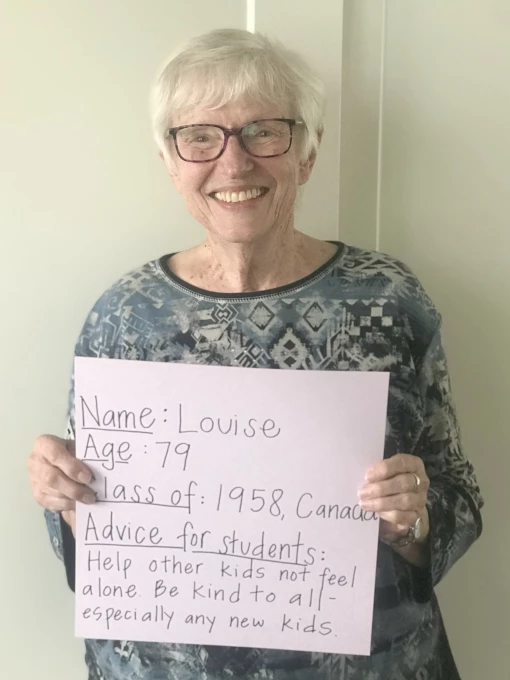 Name: Louise
Age: 79
Class of: 1958, Canada
Advice for students:
Help other kids not feel
alone. Be kind to all-
especially any new kids.